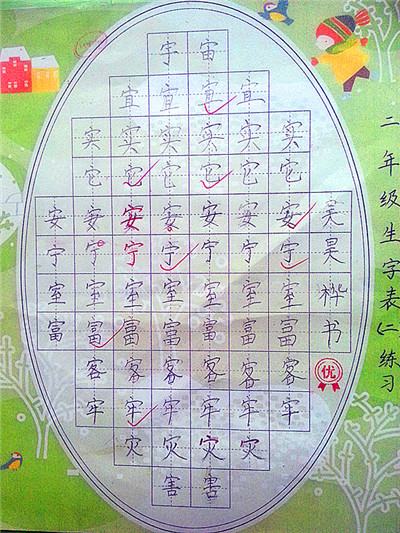 宇宙
宜宜宜宜
实实实实实实
它它它它它它
安安安安安安安吴
宁宁宁宁宁宁宁昊
室室室室室室室桦
富富富富富富富书
客客客客客客
牢牢牢牢牢牢
灾灾灾灾
害害
二年级生字表(二)练习
优